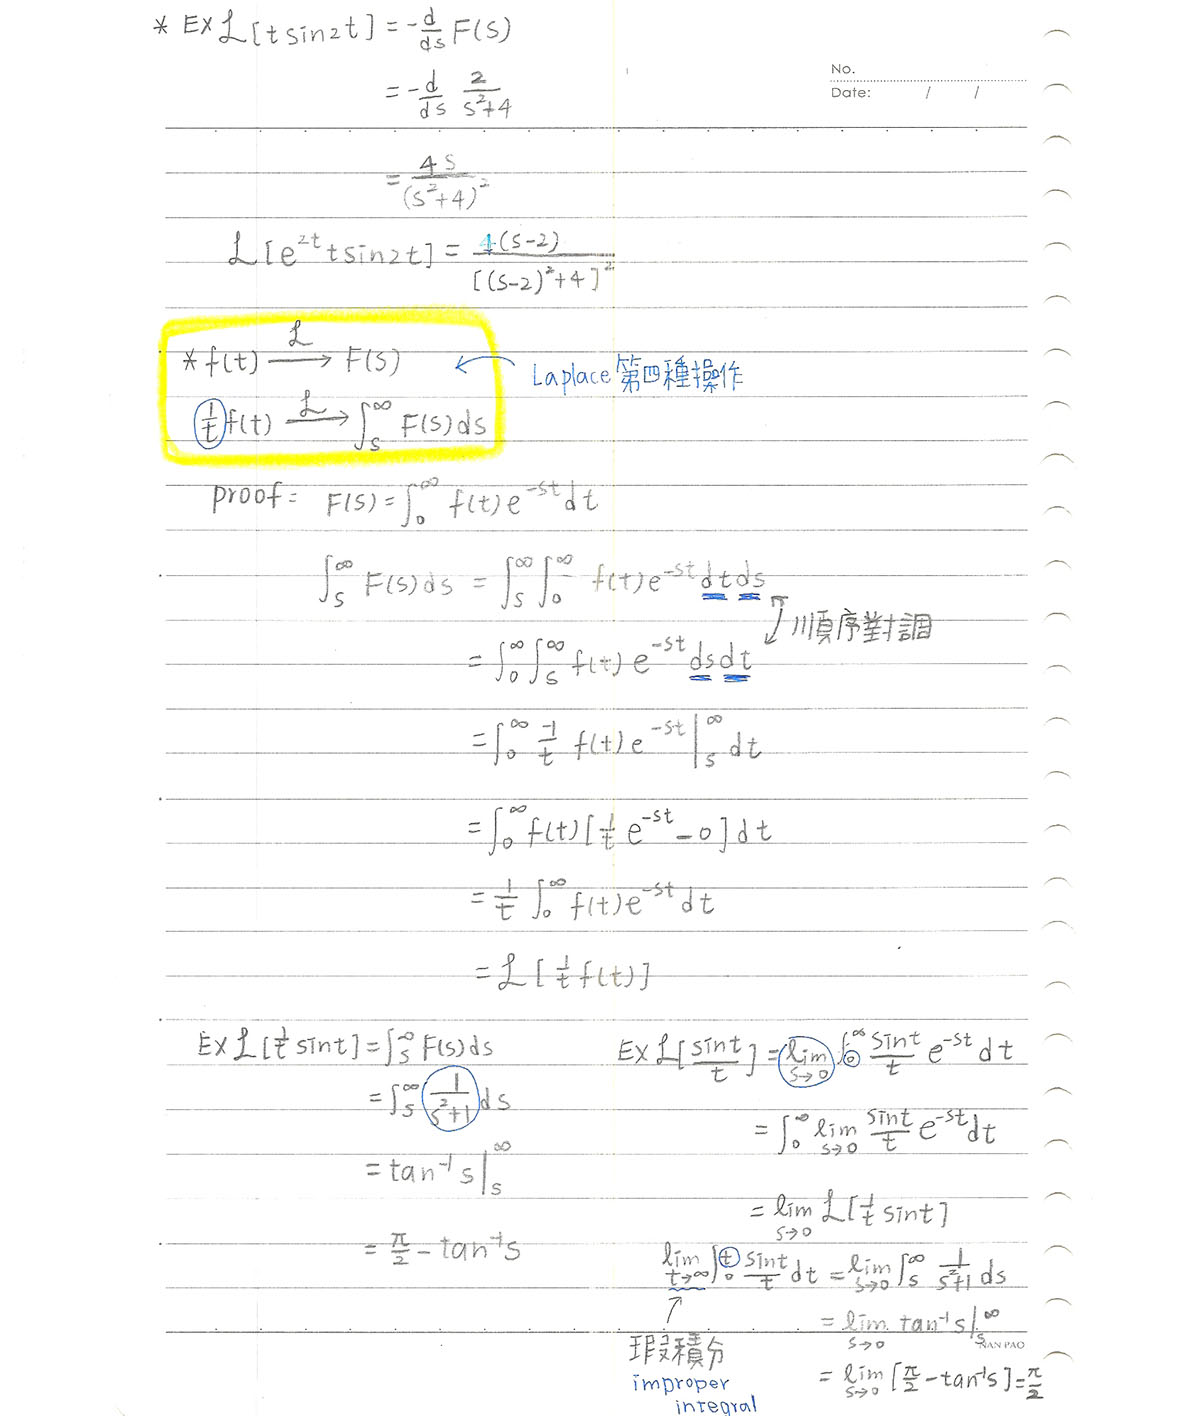 * EX ℒ[t sin2t] = -d/ds F(s)
No.
= -d/ds 2/(s²+4)
Date: / /
= 4s/(s²+4)²
ℒ[e^{2t} t sin2t] = 4(s-2)/[(s-2)²+4]²
* f(t) —ℒ→ F(s)
Laplace 第四種操作
1/t f(t) —ℒ→ ∫_s^∞ F(s)ds
proof = F(s) = ∫_0^∞ f(t)e^{-st}dt
∫_s^∞ F(s)ds = ∫_s^∞ ∫_0^∞ f(t)e^{-st}dtds
順序對調
= ∫_0^∞ ∫_s^∞ f(t)e^{-st}dsdt
= ∫_0^∞ -1/t f(t)e^{-st}|_s^∞ dt
= ∫_0^∞ f(t)[1/t e^{-st} - 0]dt
= 1/t ∫_0^∞ f(t)e^{-st}dt
= ℒ[1/t f(t)]
EX ℒ[1/t sint] = ∫_s^∞ F(s)ds
= ∫_s^∞ 1/(s²+1) ds
= tan⁻¹s|_s^∞
= π/2 - tan⁻¹s
EX ℒ[sint/t] = lim_{s→0} ∫_0^∞ sint/t e^{-st}dt
= ∫_0^∞ lim_{s→0} sint/t e^{-st}dt
= lim_{s→0} ℒ[1/t sint]
lim_{t→∞} ∫_0^t sint/t dt = lim_{s→0} ∫_s^∞ 1/(s²+1) ds
= lim_{s→0} tan⁻¹s|_s^∞
NAN PAO
瑕積分
= lim_{s→0} [π/2 - tan⁻¹s] = π/2
improper
integral